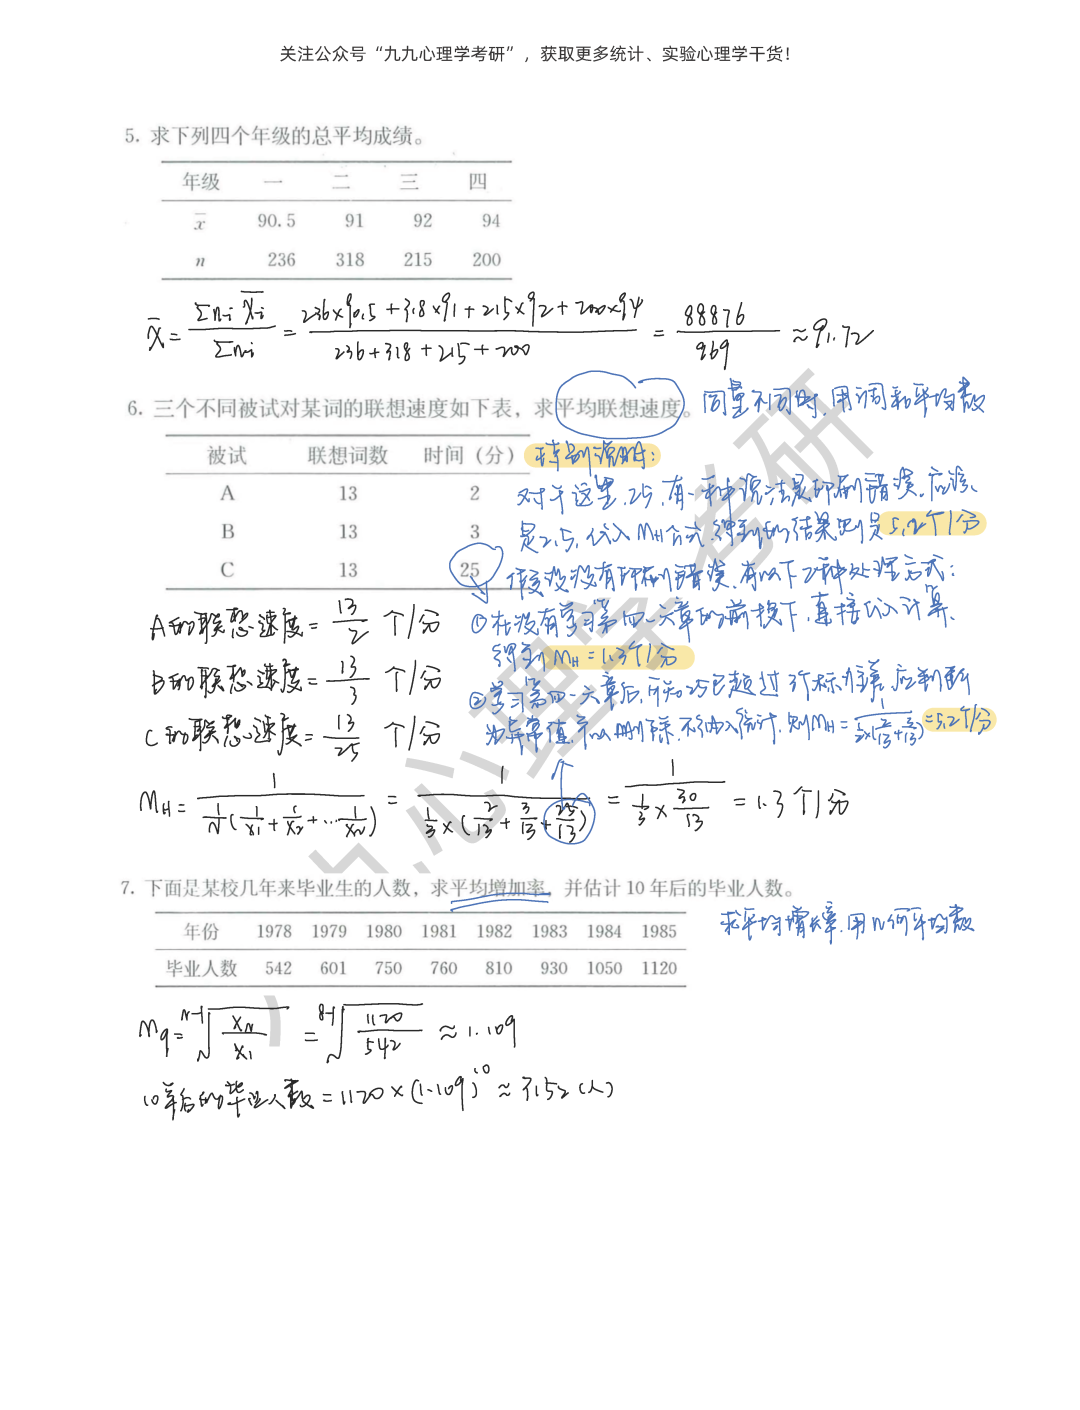 关注公众号“九九心理学考研”，获取更多统计、实验心理学干货！
5. 求下列四个年级的总平均成绩。
年级 一 二 三 四
x̄ 90.5 91 92 94
n 236 318 215 200
X̄ = Σnᵢ X̄ᵢ / Σnᵢ = (236×90.5+318×91+215×92+200×94) / (236+318+215+200) = 88876 / 969 ≈ 91.72
6. 三个不同被试对某词的联想速度如下表，求平均联想速度。 同量不同时，用调和平均数
被试 联想词数 时间（分）
A 13 2
B 13 3
C 13 25
特别说明：
对于这里，25，有一种说法是印刷错误，应该
是2.5，代入MH公式，得到的结果则是5.2个/分
假设没有印刷错误，有以下2种处理方式：
①在没有学习第四-六章的前提下，直接代入计算，
得到MH=1.3个/分
②学习第四-六章后，可知25已超过3个标准差，应判断
为异常值予以删除，不纳入统计，则MH = 1 / (½×(2/13+3/13)) = 5.2个/分
A的联想速度 = 13/2 个/分
B的联想速度 = 13/3 个/分
C的联想速度 = 13/25 个/分
MH = 1 / (1/N (1/X1 + 1/X2 + ⋯ 1/XN)) = 1 / (1/3 × (2/13 + 3/13 + 25/13)) = 1 / (1/3 × 30/13) = 1.3 个/分
7. 下面是某校几年来毕业生的人数，求平均增加率，并估计 10 年后的毕业人数。
求平均增长率，用几何平均数
年份 1978 1979 1980 1981 1982 1983 1984 1985
毕业人数 542 601 750 760 810 930 1050 1120
Mg = ᴺ⁻¹√(XN/X1) = ⁸⁻¹√(1120/542) ≈ 1.109
10年后的毕业人数 = 1120×(1.109)¹⁰ ≈ 3152(人)